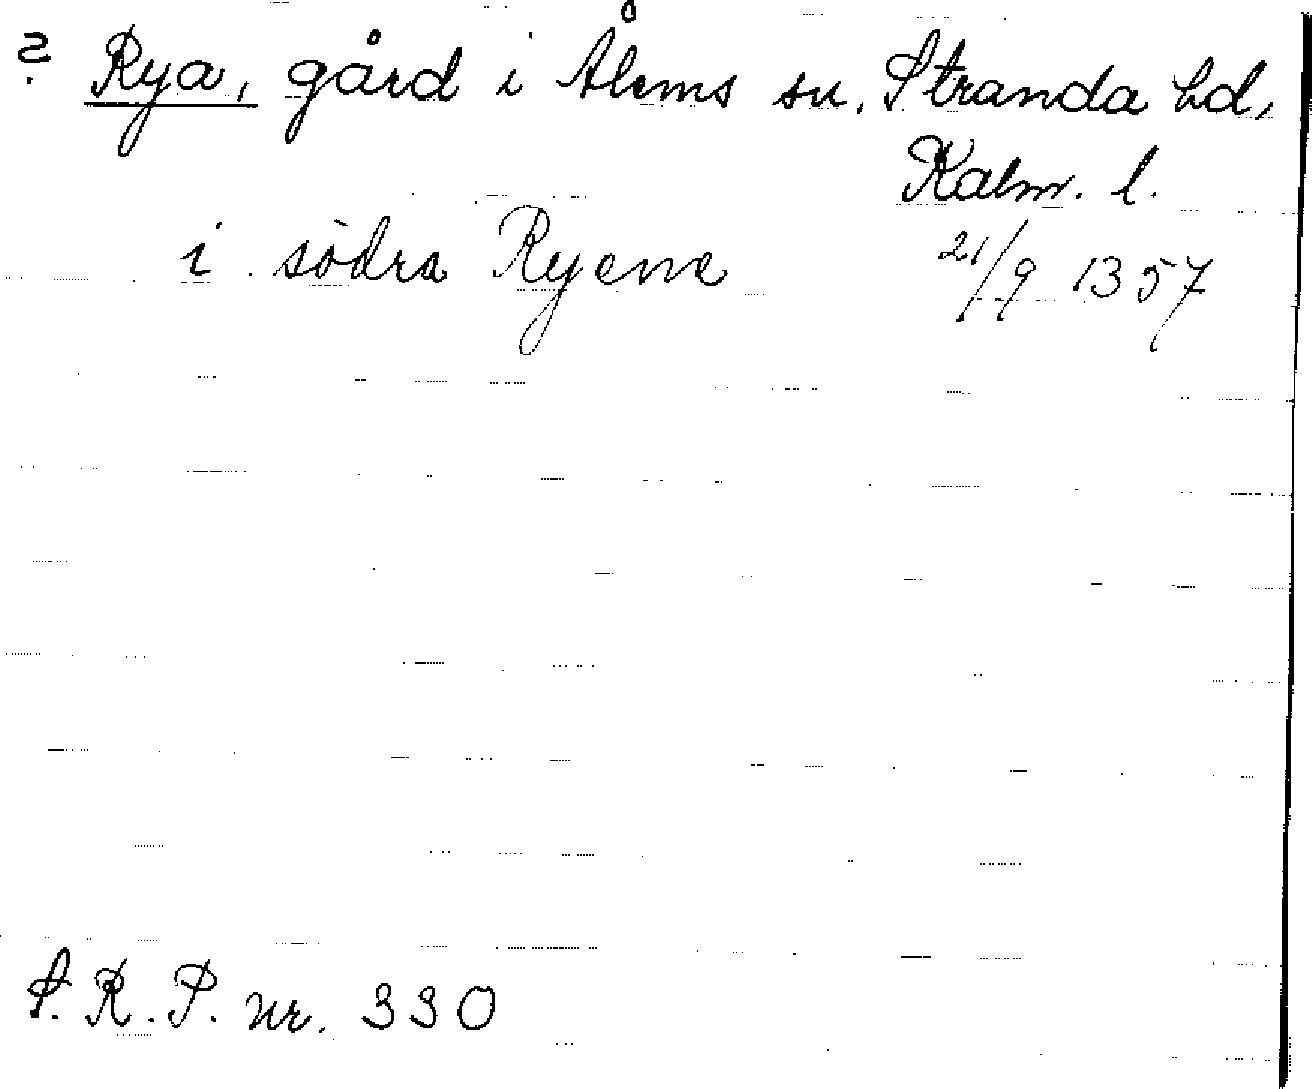 ? Rya, gård i Ålems sn. Stranda hd,
Kalm. l.
i södra Ryene 21/9 1357
S. R. P. nr. 330